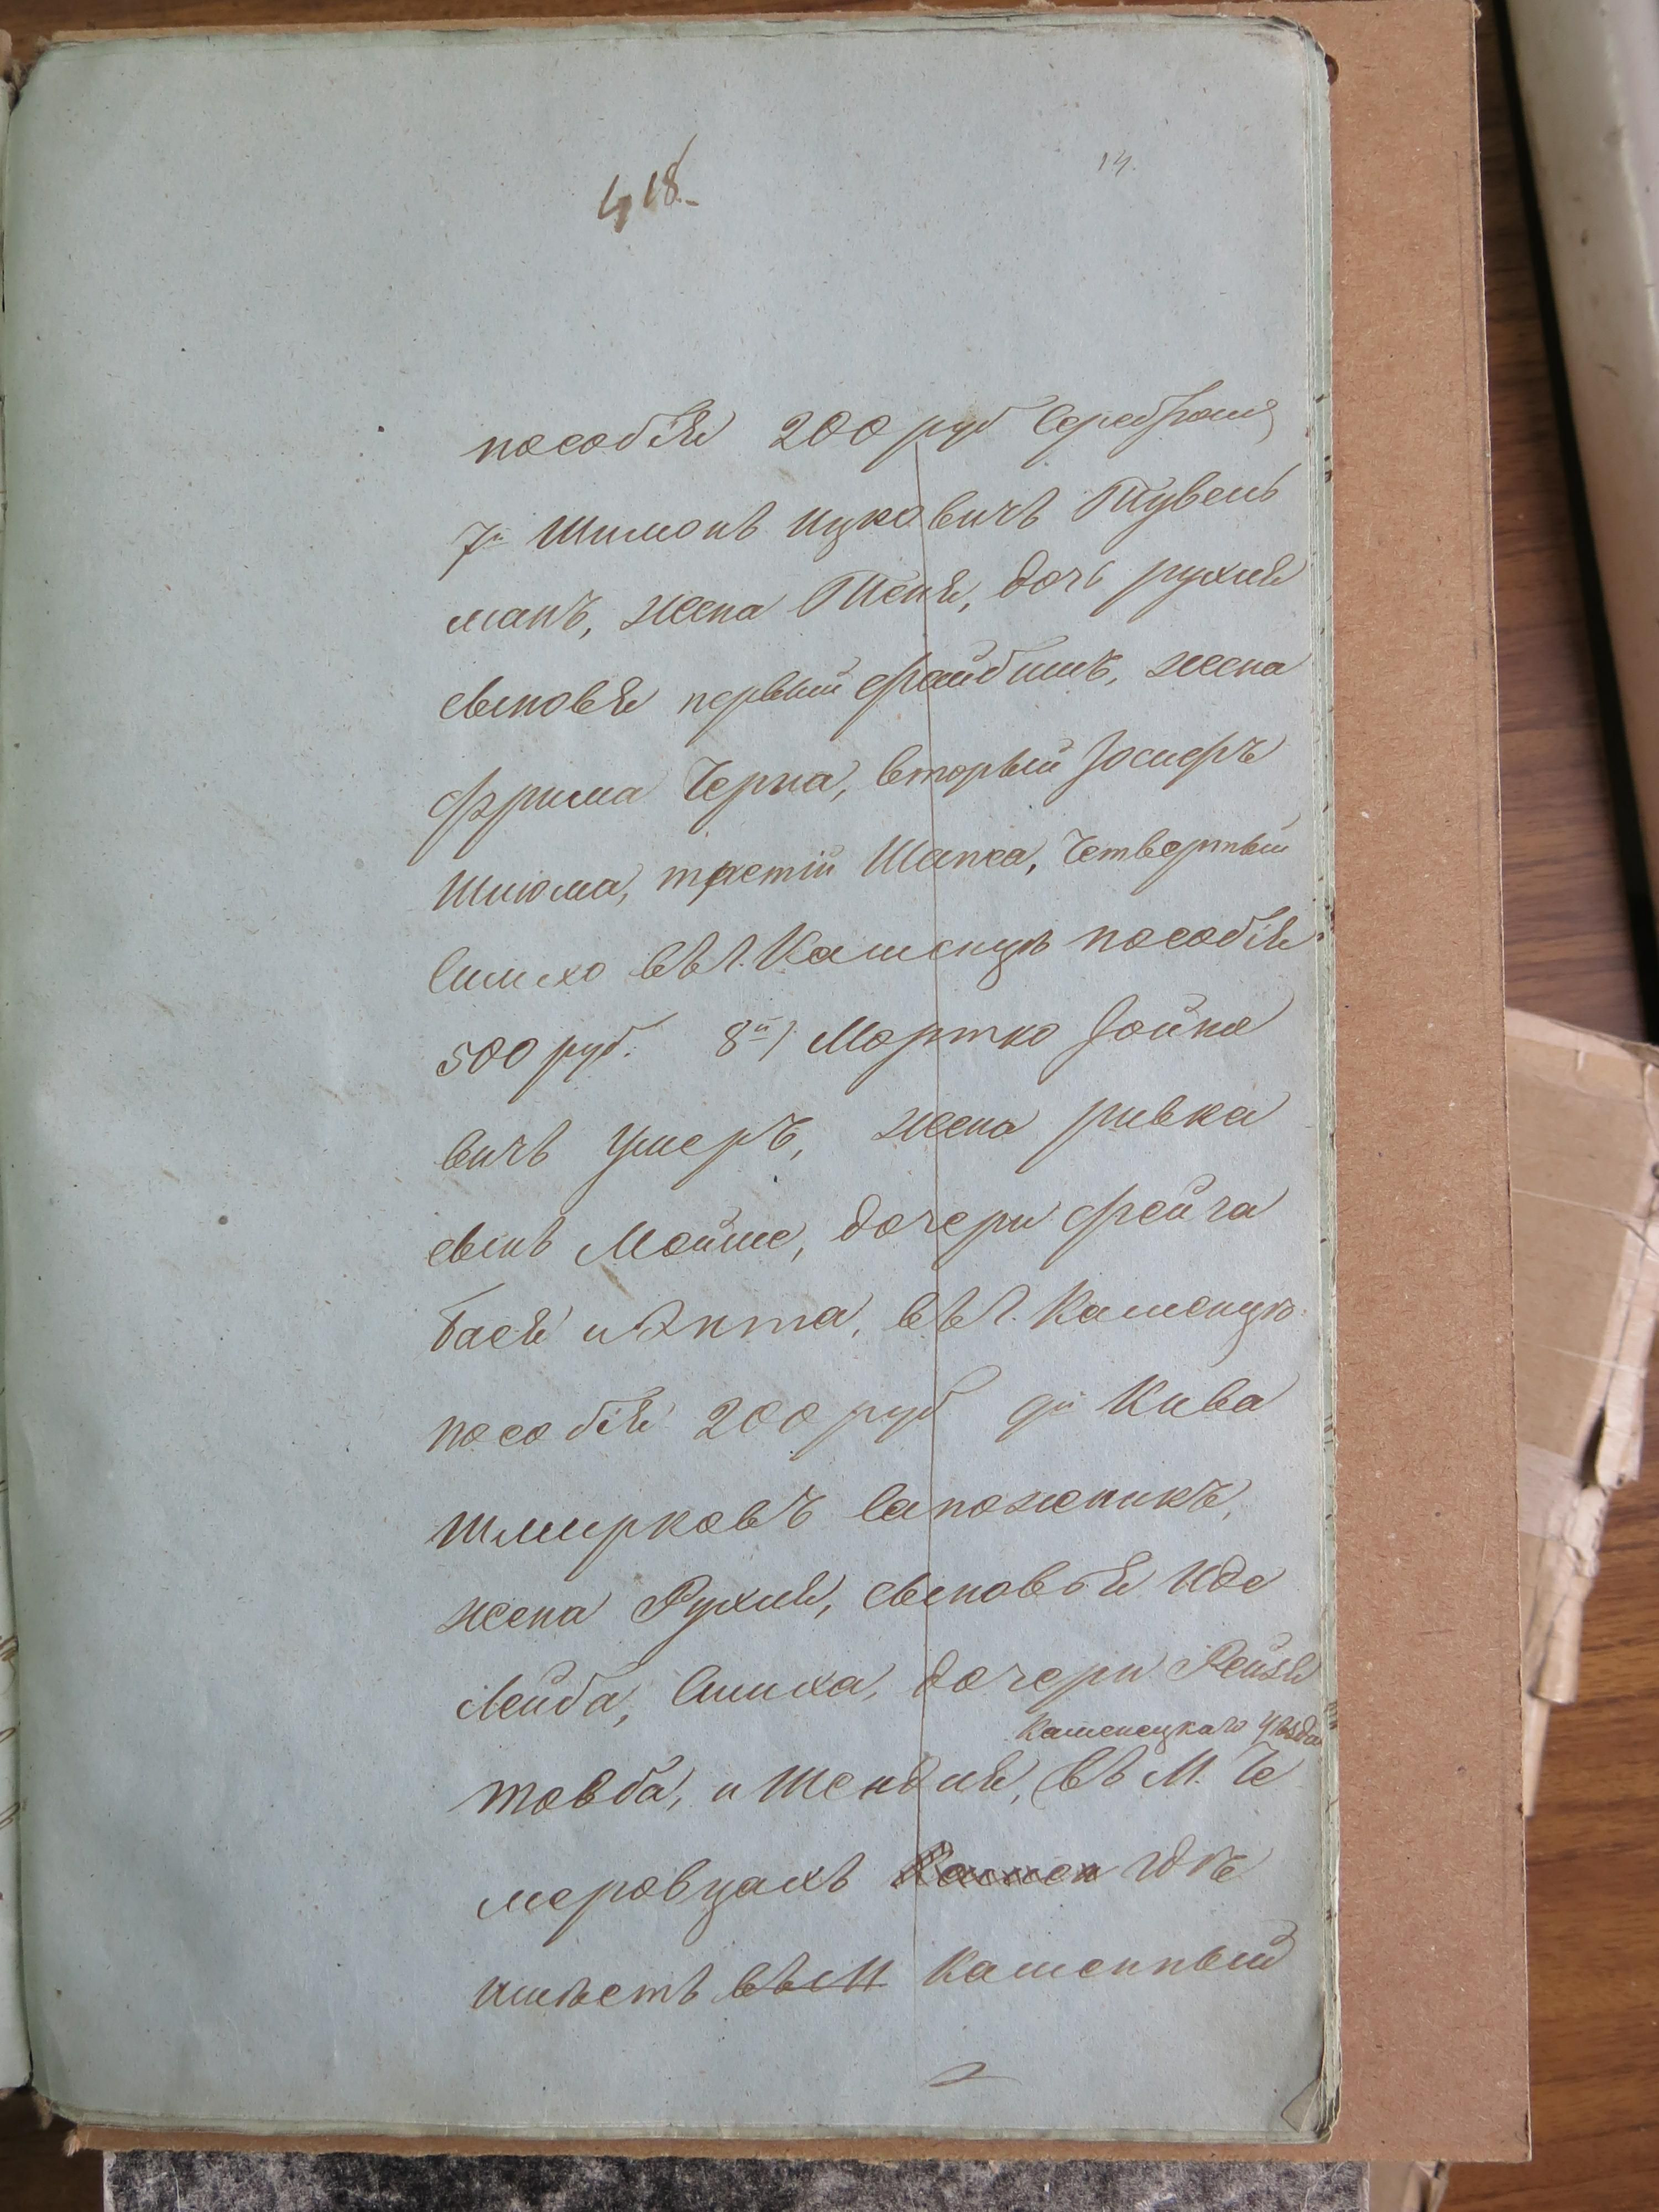 418.
14.
пособія 200 руб Серебромъ
7й Шимонъ Ицковичъ Тувень
манъ, жена Теня, дочь рухля
сыновья первый Файбишъ, жена
Фрима Черна, вторый Іосифъ
Шлюма, третій Шапса, Четвертый
Симхо въ г. Каменцѣ пособія
500 руб. 8й) Мортко Іойне
вичъ Умеръ, жена ривка
сынъ Мойше, дочери Фейга
Бася и Энта, въ г. Каменцѣ
пособія 200 руб 9й Кива
Шмирковъ Сапожникъ,
жена Рухля, сыновья Иде
Лейба, Симха, дочери Рейзя
Каменецкаго Уѣзда
товба, и Шендля, въ М. Че
меровцахъ Камен гдѣ
имѣетъ въ М Каменный